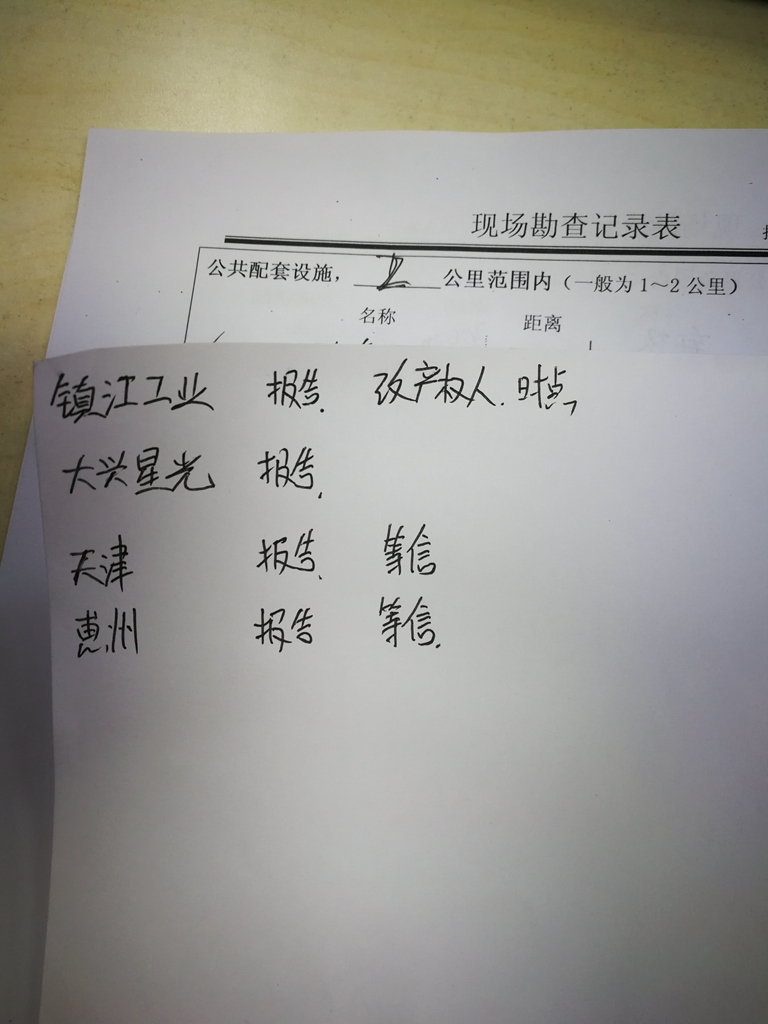 现场勘查记录表
公共配套设施， 2 公里范围内（一般为1～2公里）
名称 距离
镇江工业 报告. 改产权人. 时点,
大兴星光 报告.
天津 报告. 等信
惠州 报告 等信.